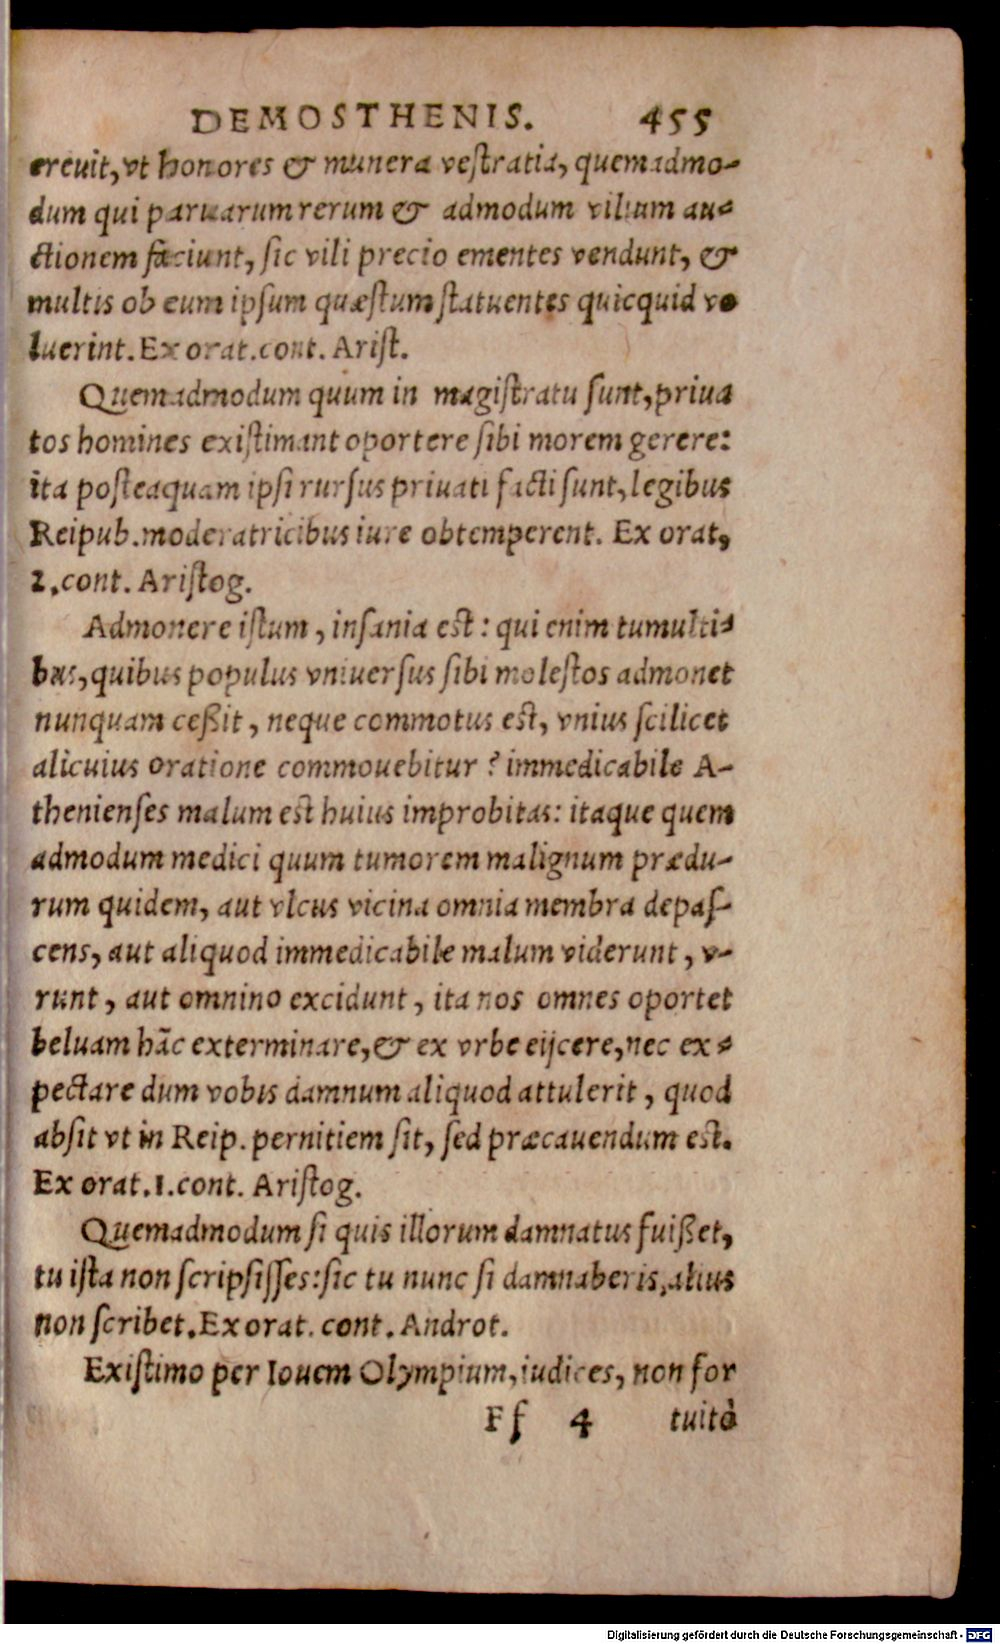 DEMOSTHENIS. 455
creuit, vt honores & munera vestratia, quemadmo-
dum qui paruarum rerum & admodum vilium au-
ctionem faciunt, sic vili precio ementes vendunt, &
multis ob eum ipsum quæstum statuentes quicquid vo
luerint. Ex orat. cont. Arist.
Quemadmodum quum in magistratu sunt, priua
tos homines existimant oportere sibi morem gerere:
ita posteaquam ipsi rursus priuati facti sunt, legibus
Reipub. moderatricibus iure obtemperent. Ex orat,
2. cont. Aristog.
Admonere istum, insania est: qui enim tumulti-
bus, quibus populus vniuersus sibi molestos admonet
nunquam ceßit, neque commotus est, vnius scilicet
alicuius oratione commouebitur? immedicabile A-
thenienses malum est huius improbitas: itaque quem
admodum medici quum tumorem malignum prædu-
rum quidem, aut vlcus vicina omnia membra depas-
cens, aut aliquod immedicabile malum viderunt, v-
runt, aut omnino excidunt, ita nos omnes oportet
beluam hāc exterminare, & ex vrbe eijcere, nec ex-
pectare dum vobis damnum aliquod attulerit, quod
absit vt in Reip. pernitiem sit, sed præcauendum est.
Ex orat. 1. cont. Aristog.
Quemadmodum si quis illorum damnatus fuißet,
tu ista non scripsisses: sic tu nunc si damnaberis, alius
non scribet. Ex orat. cont. Androt.
Existimo per Iouem Olympium, iudices, non for
Ff 4 tuitò
Digitalisierung gefördert durch die Deutsche Forschungsgemeinschaft - DFG